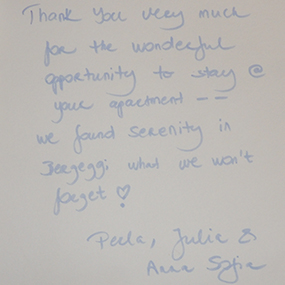 Thank you very much
for the wonderful
opportunity to stay @
your apartment --
we found serenity in
Bergeggi what we won't
forget ♡
Perla, Julie &
Anna Sofie